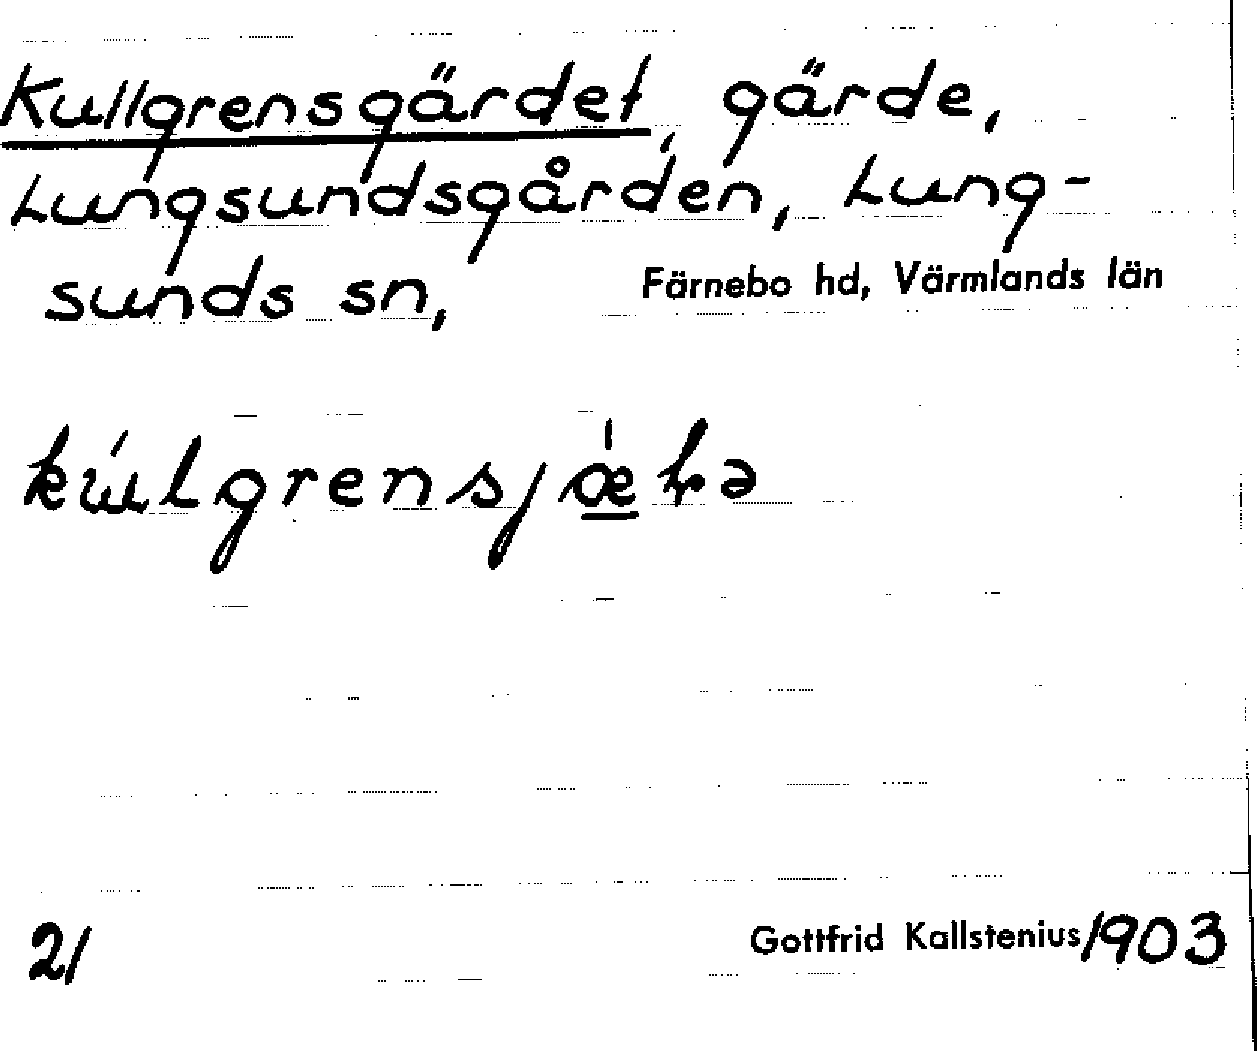 Kullgrensgärdet, gärde,
Lungsundsgården, Lung-
sunds sn, Färnebo hd, Värmlands län
21 Gottfrid Kallstenius 1903